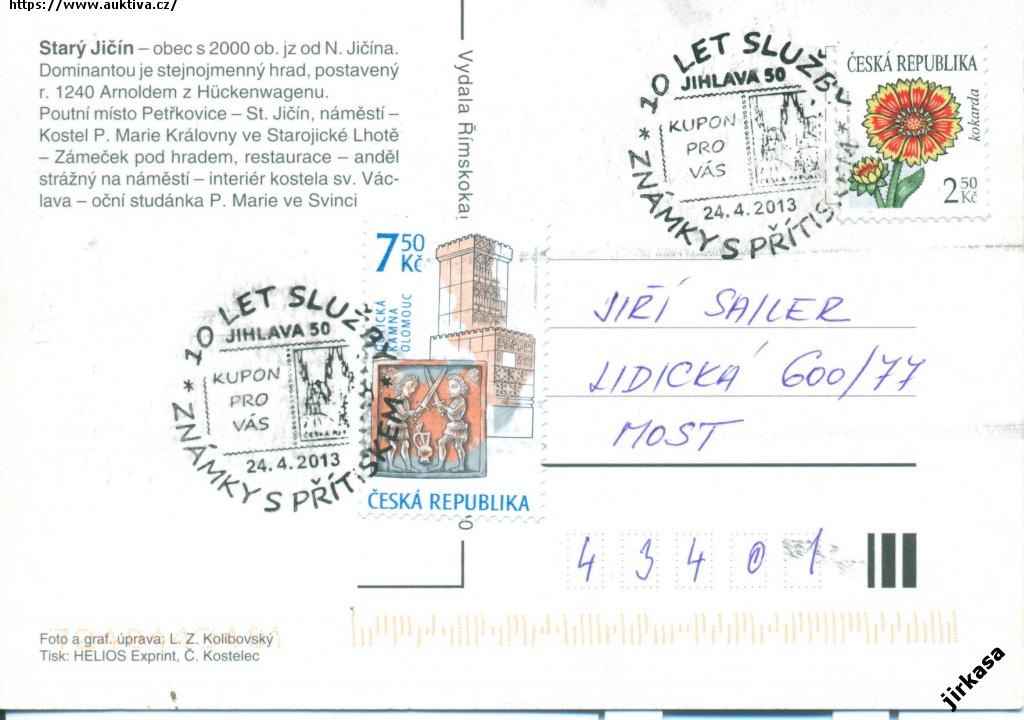 https://www.auktiva.cz/
Starý Jičín – obec s 2000 ob. jz od N. Jičína.
Dominantou je stejnojmenný hrad, postavený
r. 1240 Arnoldem z Hückenwagenu.
Poutní místo Petřkovice – St. Jičín, náměstí –
Kostel P. Marie Královny ve Starojické Lhotě
– Zámeček pod hradem, restaurace – anděl
strážný na náměstí – interiér kostela sv. Vác-
lava – oční studánka P. Marie ve Svinci
Vydala Římskoka
10 LET SLUŽBY
JIHLAVA 50
KUPON
PRO
VÁS
24.4.2013
* ZNÁMKY S PŘÍTISKEM *
ČESKÁ REPUBLIKA
kokarda
2 50
Kč
7 50
Kč
KAMNA
OLOMOUC
ČESKÁ REPUBLIKA
10 LET SLUŽ
JIHLAVA 50
KUPON
PRO
VÁS
24.4.2013
* ZNÁMKY S PŘÍTISKEM *
JIŘÍ SAJLER
LIDICKÁ 600/77
MOST
43401
Foto a graf. úprava: L. Z. Kolibovský
Tisk: HELIOS Exprint, Č. Kostelec
jirkasa